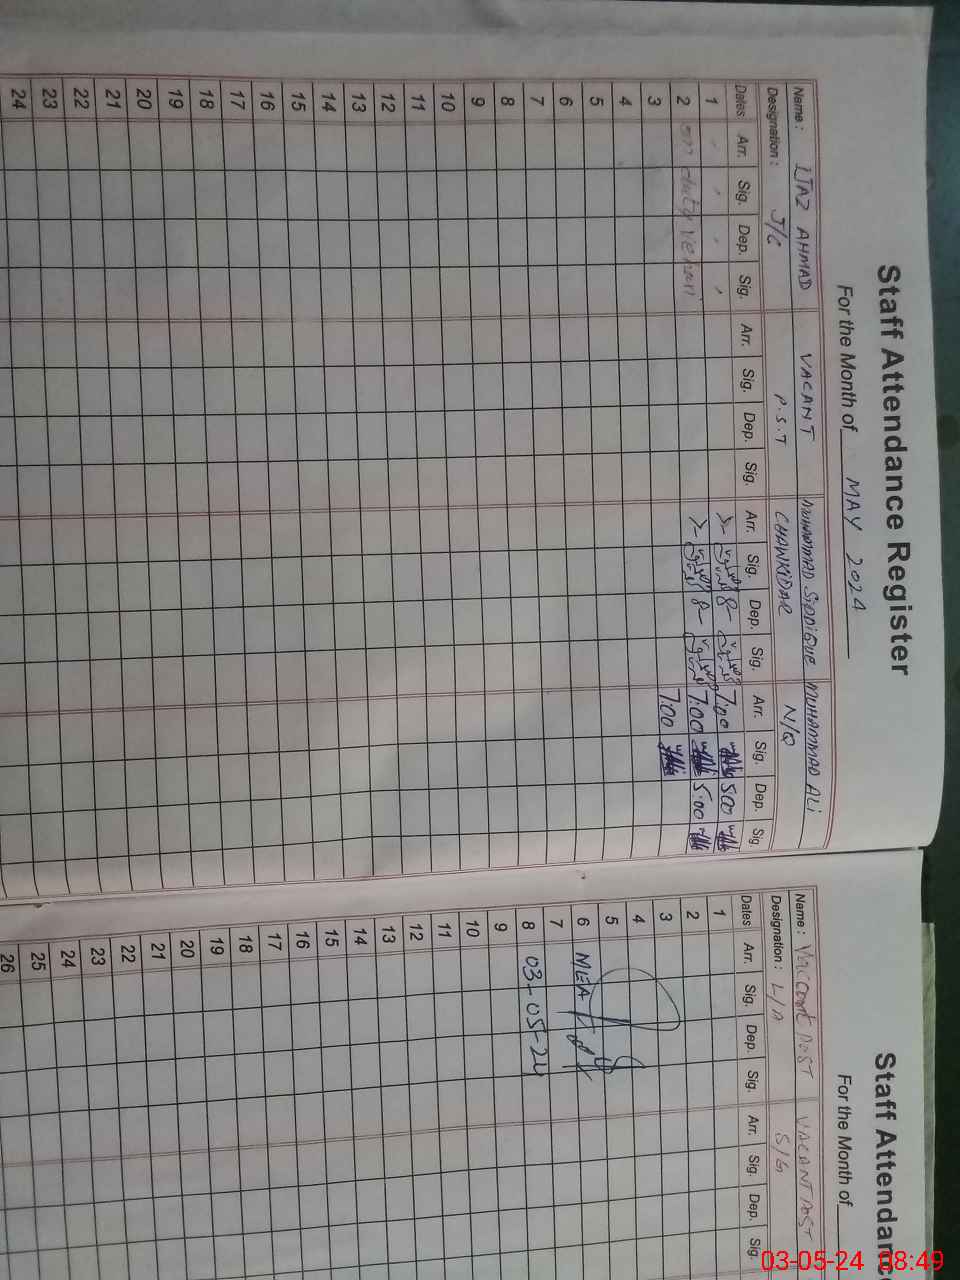 Staff Attendance Register
For the Month of MAY 2024
Name : IJAZ AHMAD VACANT MUHAMMAD SIDDIQUE MUHAMMAD ALI
Designation : J/C P.S.T CHAWKIDAR N/Q
Dates Arr. Sig. Dep. Sig. Arr. Sig. Dep. Sig. Arr. Sig. Dep. Sig. Arr. Sig. Dep. Sig.
1 8- 7:00 5:00
2 on duty vehari 8- 7:00 5:00
3 7:00
4
5
6
7
8
9
10
11
12
13
14
15
16
17
18
19
20
21
22
23
24
Staff Attendanc
For the Month of
Name : Vaccant POST VACANT POST
Designation : L/A S/G
Dates Arr. Sig. Dep. Sig. Arr. Sig. Dep. Sig.
1
2
3
4
5
6 MEA
7
8 03-05-24
9
10
11
12
13
14
15
16
17
18
19
20
21
22
23
24
25
26
03-05-24 08:49